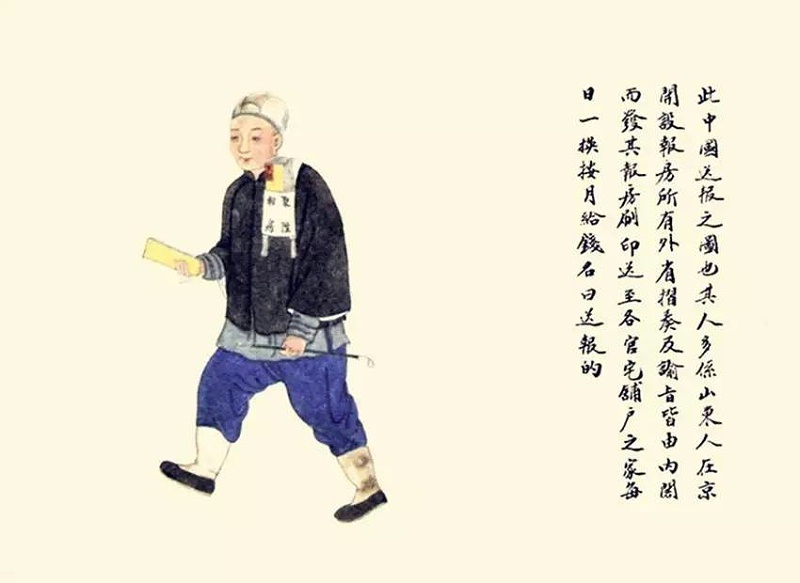 此中國送报之圖也其人多係山東人在京
開設報房所有外省摺奏及諭旨皆由内閣
而發其報房刷印送至各官宅舖户之家每
日一換按月給錢名曰送報的
陞
報房